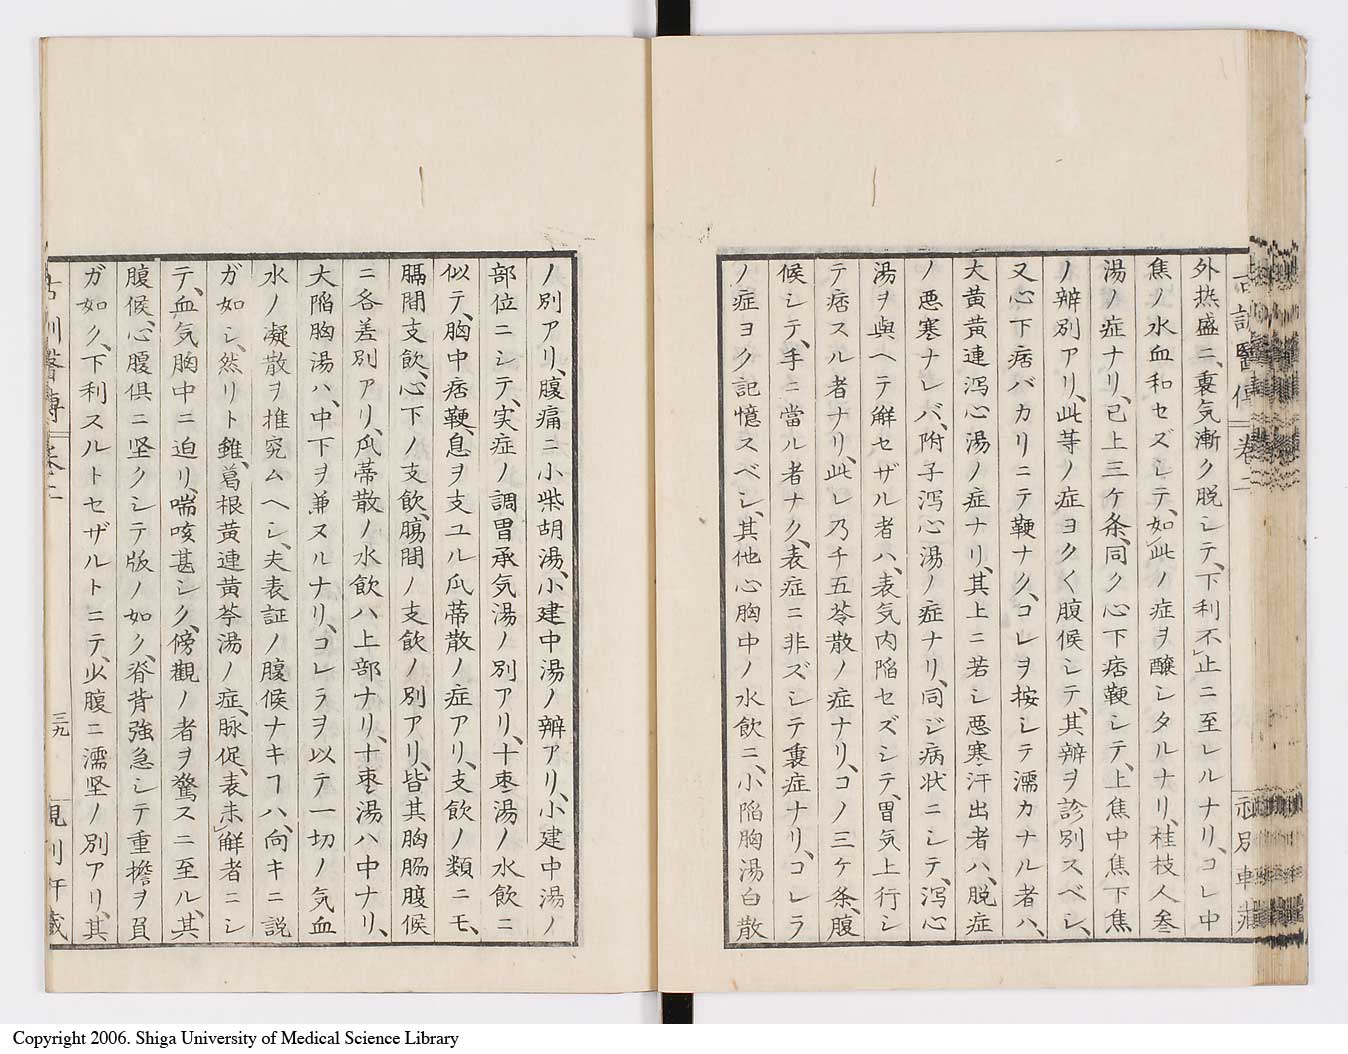 外热盛ニ、裏气漸ク脱シテ、下利不止ニ至レルナリ、コレ中
焦ノ水血和セズシテ、如此ノ症ヲ醸シタルナリ、桂枝人参
湯ノ症ナリ、已上三ケ条、同ク心下痞鞕シテ、上焦中焦下焦
ノ辨別アリ、此等ノ症ヨクく腹候シテ、其辨ヲ診別スベシ、
又心下痞バカリニテ鞕ナク、コレヲ按シテ濡カナル者ハ、
大黄黄連泻心湯ノ症ナリ、其上ニ若シ悪寒汗出者ハ、脱症
ノ悪寒ナレバ、附子泻心湯ノ症ナリ、同ジ病状ニシテ、泻心
湯ヲ與ヘテ解セザル者ハ、表気内陥セズシテ、胃気上行シ
テ痞スル者ナリ、此レ乃チ五苓散ノ症ナリ、コノ三ケ条、腹
候シテ、手ニ當ル者ナク、表症ニ非ズシテ裏症ナリ、コレラ
ノ症ヨク記憶スベシ、其他心胸中ノ水飲ニ、小陥胸湯白散
ノ別アリ、腹痛ニ小柴胡湯、小建中湯ノ辨アリ、小建中湯ノ
部位ニシテ、実症ノ調胃承気湯ノ別アリ、十枣湯ノ水飲ニ
似テ、胸中痞鞕、息ヲ支ユル瓜蒂散ノ症アリ、支飲ノ類ニモ、
膈間支飲、心下ノ支飲、膓間ノ支飲ノ別アリ、皆其胸肠腹候
ニ各差別アリ、瓜蒂散ノ水飲ハ上部ナリ、十枣湯ハ中ナリ、
大陥胸湯ハ、中下ヲ兼ヌルナリ、コレラヲ以テ一切ノ気血
水ノ凝散ヲ推究ムヘシ、夫表証ノ腹候ナキヿハ、向キニ説
ガ如シ、然リト雖、葛根黄連黄芩湯ノ症、脉促、表未解者ニシ
テ、血気胸中ニ迫リ、喘咳甚シク、傍觀ノ者ヲ驚スニ至ル、其
腹候、心腹俱ニ坚クシテ版ノ如ク、脊背強急シテ重擔ヲ負
ガ如ク、下利スルトセザルトニテ、必腹ニ濡坚ノ別アリ、其
三九
Copyright 2006. Shiga University of Medical Science Library